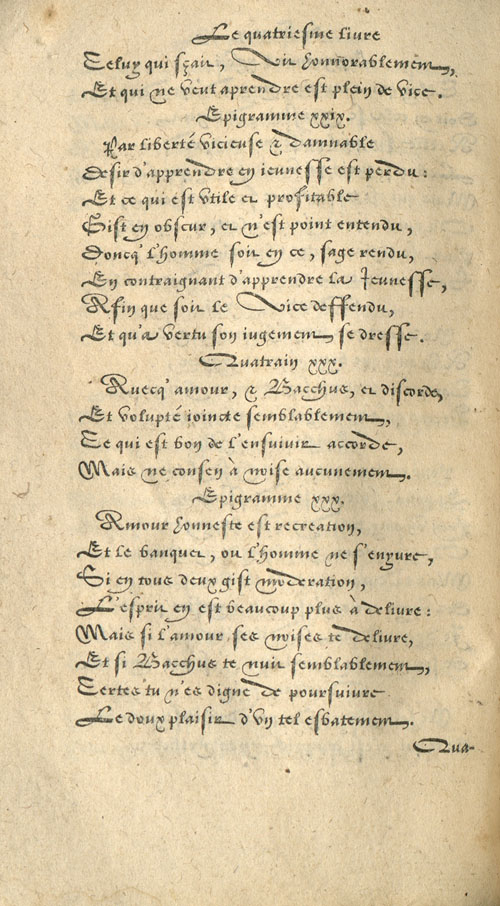 Le quatriesme livre
Celuy qui sçait, Vit honnorablement,
Et qui ne veut aprendre est plein de vice.
Epigramme xxix.
Par liberté vicieuse & damnable
Desir d'apprendre en ieunesse est perdu:
Et ce qui est vtile et profitable
Gist en obscur, et n'est point entendu,
Doncq' l'homme soit en ce, sage rendu,
En contraignant d'apprendre la Ieunesse,
Afin que soit le Vice deffendu,
Et qu'a vertu son iugement se dresse.
Quatrain xxx.
Auecq' amour, & Bacchus, et discorde,
Et volupté ioincte semblablement,
Ce qui est bon de l'ensuivir accorde,
Mais ne consen à noise aucunement.
Epigramme xxx.
Amour honneste est recreation,
Et le banquet, ou l'homme ne s'enyvre,
Si en tous deux gist moderation,
L'esprit en est beaucoup plus à delivre:
Mais si l'amour ses noises te delivre,
Et si Bacchus te nuit semblablement,
Certes tu n'es digne de poursuivre
Le doux plaisir d'vn tel esbatement.
Qua-